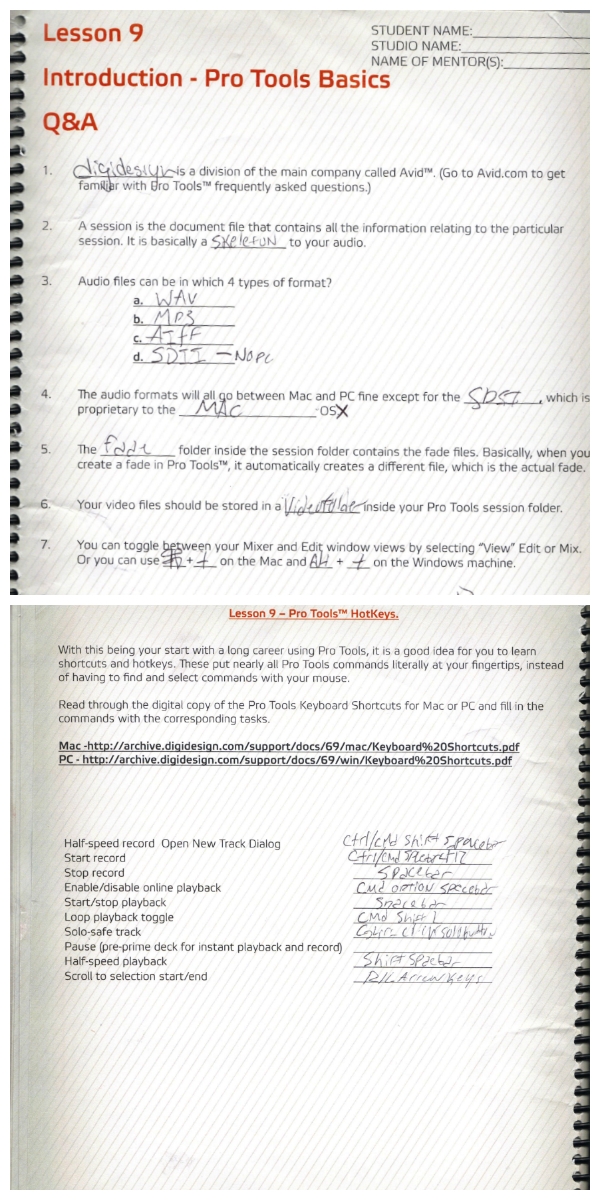 Lesson 9
STUDENT NAME:
STUDIO NAME:
NAME OF MENTOR(S):
Introduction - Pro Tools Basics
Q&A
1. digidesign is a division of the main company called Avid™. (Go to Avid.com to get
familiar with Pro Tools™ frequently asked questions.)
2. A session is the document file that contains all the information relating to the particular
session. It is basically a skeleton to your audio.
3. Audio files can be in which 4 types of format?
a. WAV
b. MP3
c. AIFF
d. SDII - No PC
4. The audio formats will all go between Mac and PC fine except for the SDII, which is
proprietary to the MAC -OSX
5. The fade folder inside the session folder contains the fade files. Basically, when you
create a fade in Pro Tools™, it automatically creates a different file, which is the actual fade.
6. Your video files should be stored in a Video folder inside your Pro Tools session folder.
7. You can toggle between your Mixer and Edit window views by selecting "View" Edit or Mix.
Or you can use ⌘ + + on the Mac and Alt + + on the Windows machine.
Lesson 9 – Pro Tools™ HotKeys.
With this being your start with a long career using Pro Tools, it is a good idea for you to learn
shortcuts and hotkeys. These put nearly all Pro Tools commands literally at your fingertips, instead
of having to find and select commands with your mouse.
Read through the digital copy of the Pro Tools Keyboard Shortcuts for Mac or PC and fill in the
commands with the corresponding tasks.
Mac -http://archive.digidesign.com/support/docs/69/mac/Keyboard%20Shortcuts.pdf
PC - http://archive.digidesign.com/support/docs/69/win/Keyboard%20Shortcuts.pdf
Half-speed record Open New Track Dialog Ctrl/cmd Shift Spacebar
Start record Ctrl/Cmd Space F12
Stop record Spacebar
Enable/disable online playback Cmd option spacebar
Start/stop playback Spacebar
Loop playback toggle CMd Shift L
Solo-safe track click solo button
Pause (pre-prime deck for instant playback and record)
Half-speed playback Shift Spacebar
Scroll to selection start/end R/L Arrow Keys